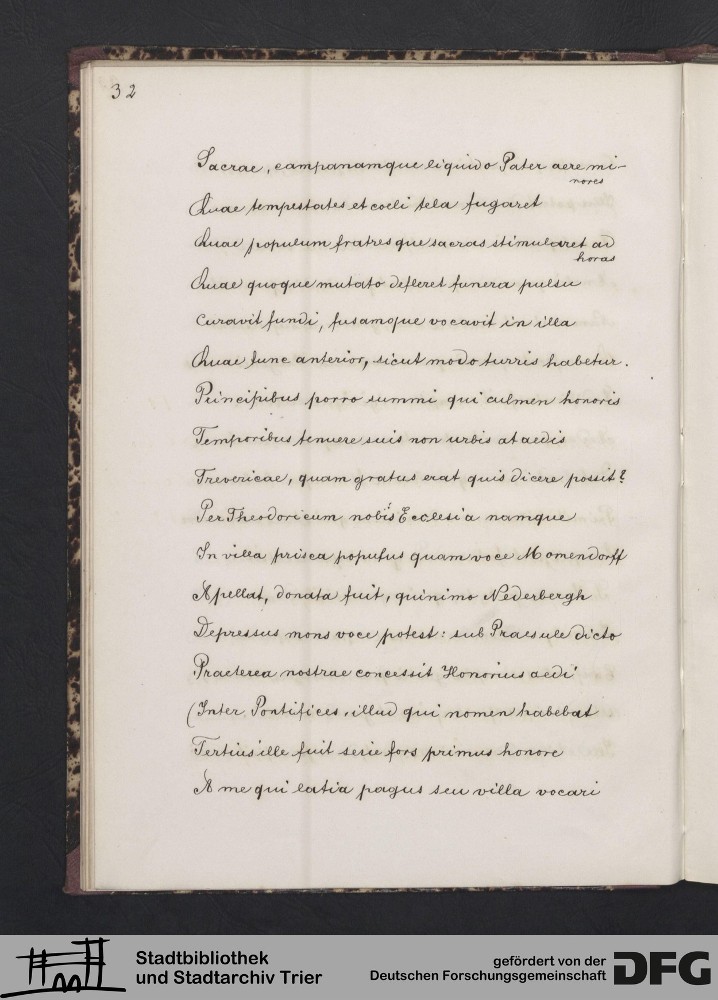 32
Sacrae, campanamque liquido Pater aere mi-
nores
Quae tempestates et coeli tela fugaret
Quae populum fratresque sacras stimularet ad
horas
Quae quoque mutato defleret funera pulsu
Curavit fundi, fusamque vocavit in illa
Quae tunc anterior, sicut modo turris habetur.
Principibus porro summi qui culmen honoris
Temporibus tenuere suis non urbis at aedis
Trevericae, quam gratus erat quis dicere possit?
Per Theodoricum nobis Ecclesia namque
In villa prisca populus quam voce Momendorff
Apellat, donata fuit, quinimo Nederbergh
Depressus mons voce potest: sub Praesule dicto
Praeterea nostrae concessit Honorius aedi
(Inter Pontifices, illud qui nomen habebat
Tertius ille fuit serie fors primus honore
A me qui latia pagus seu villa vocari
Stadtbibliothek
und Stadtarchiv Trier
gefördert von der
Deutschen Forschungsgemeinschaft
DFG